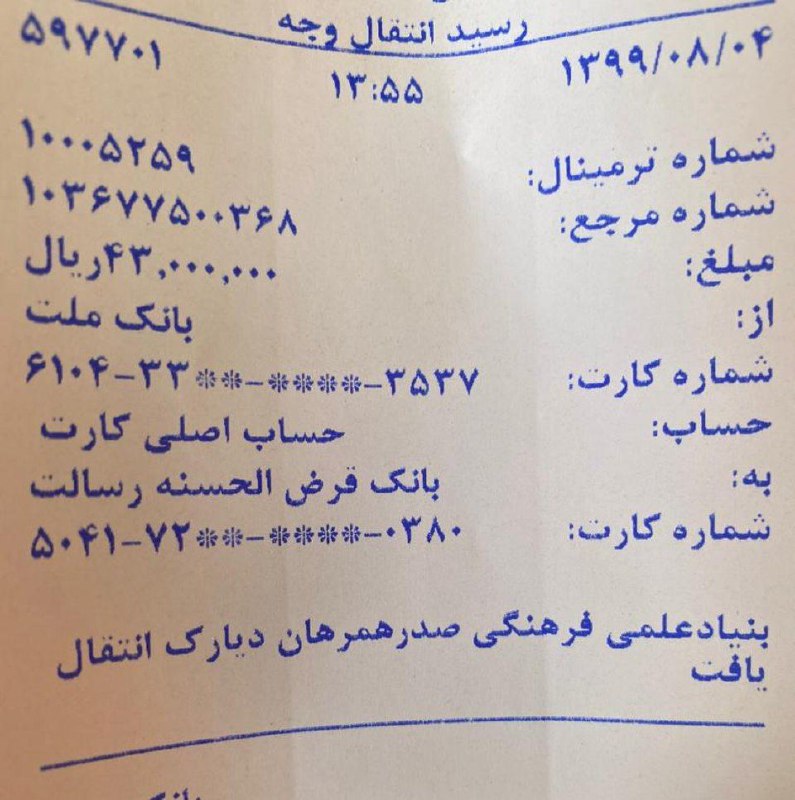 رسید انتقال وجه
۱۳۹۹/۰۸/۰۴ ۵۹۷۷۰۱
۱۳:۵۵
شماره ترمینال: ۱۰۰۰۵۲۵۹
شماره مرجع: ۱۰۳۶۷۷۵۰۰۳۶۸
مبلغ: ۴۳,۰۰۰,۰۰۰ریال
از: بانک ملت
شماره کارت: ۶۱۰۴-۳۳**-****-۳۵۳۷
حساب: حساب اصلی کارت
به: بانک قرض الحسنه رسالت
شماره کارت: ۵۰۴۱-۷۲**-****-۰۳۸۰
بنیادعلمی فرهنگی صدرهمرهان دیارک انتقال
یافت